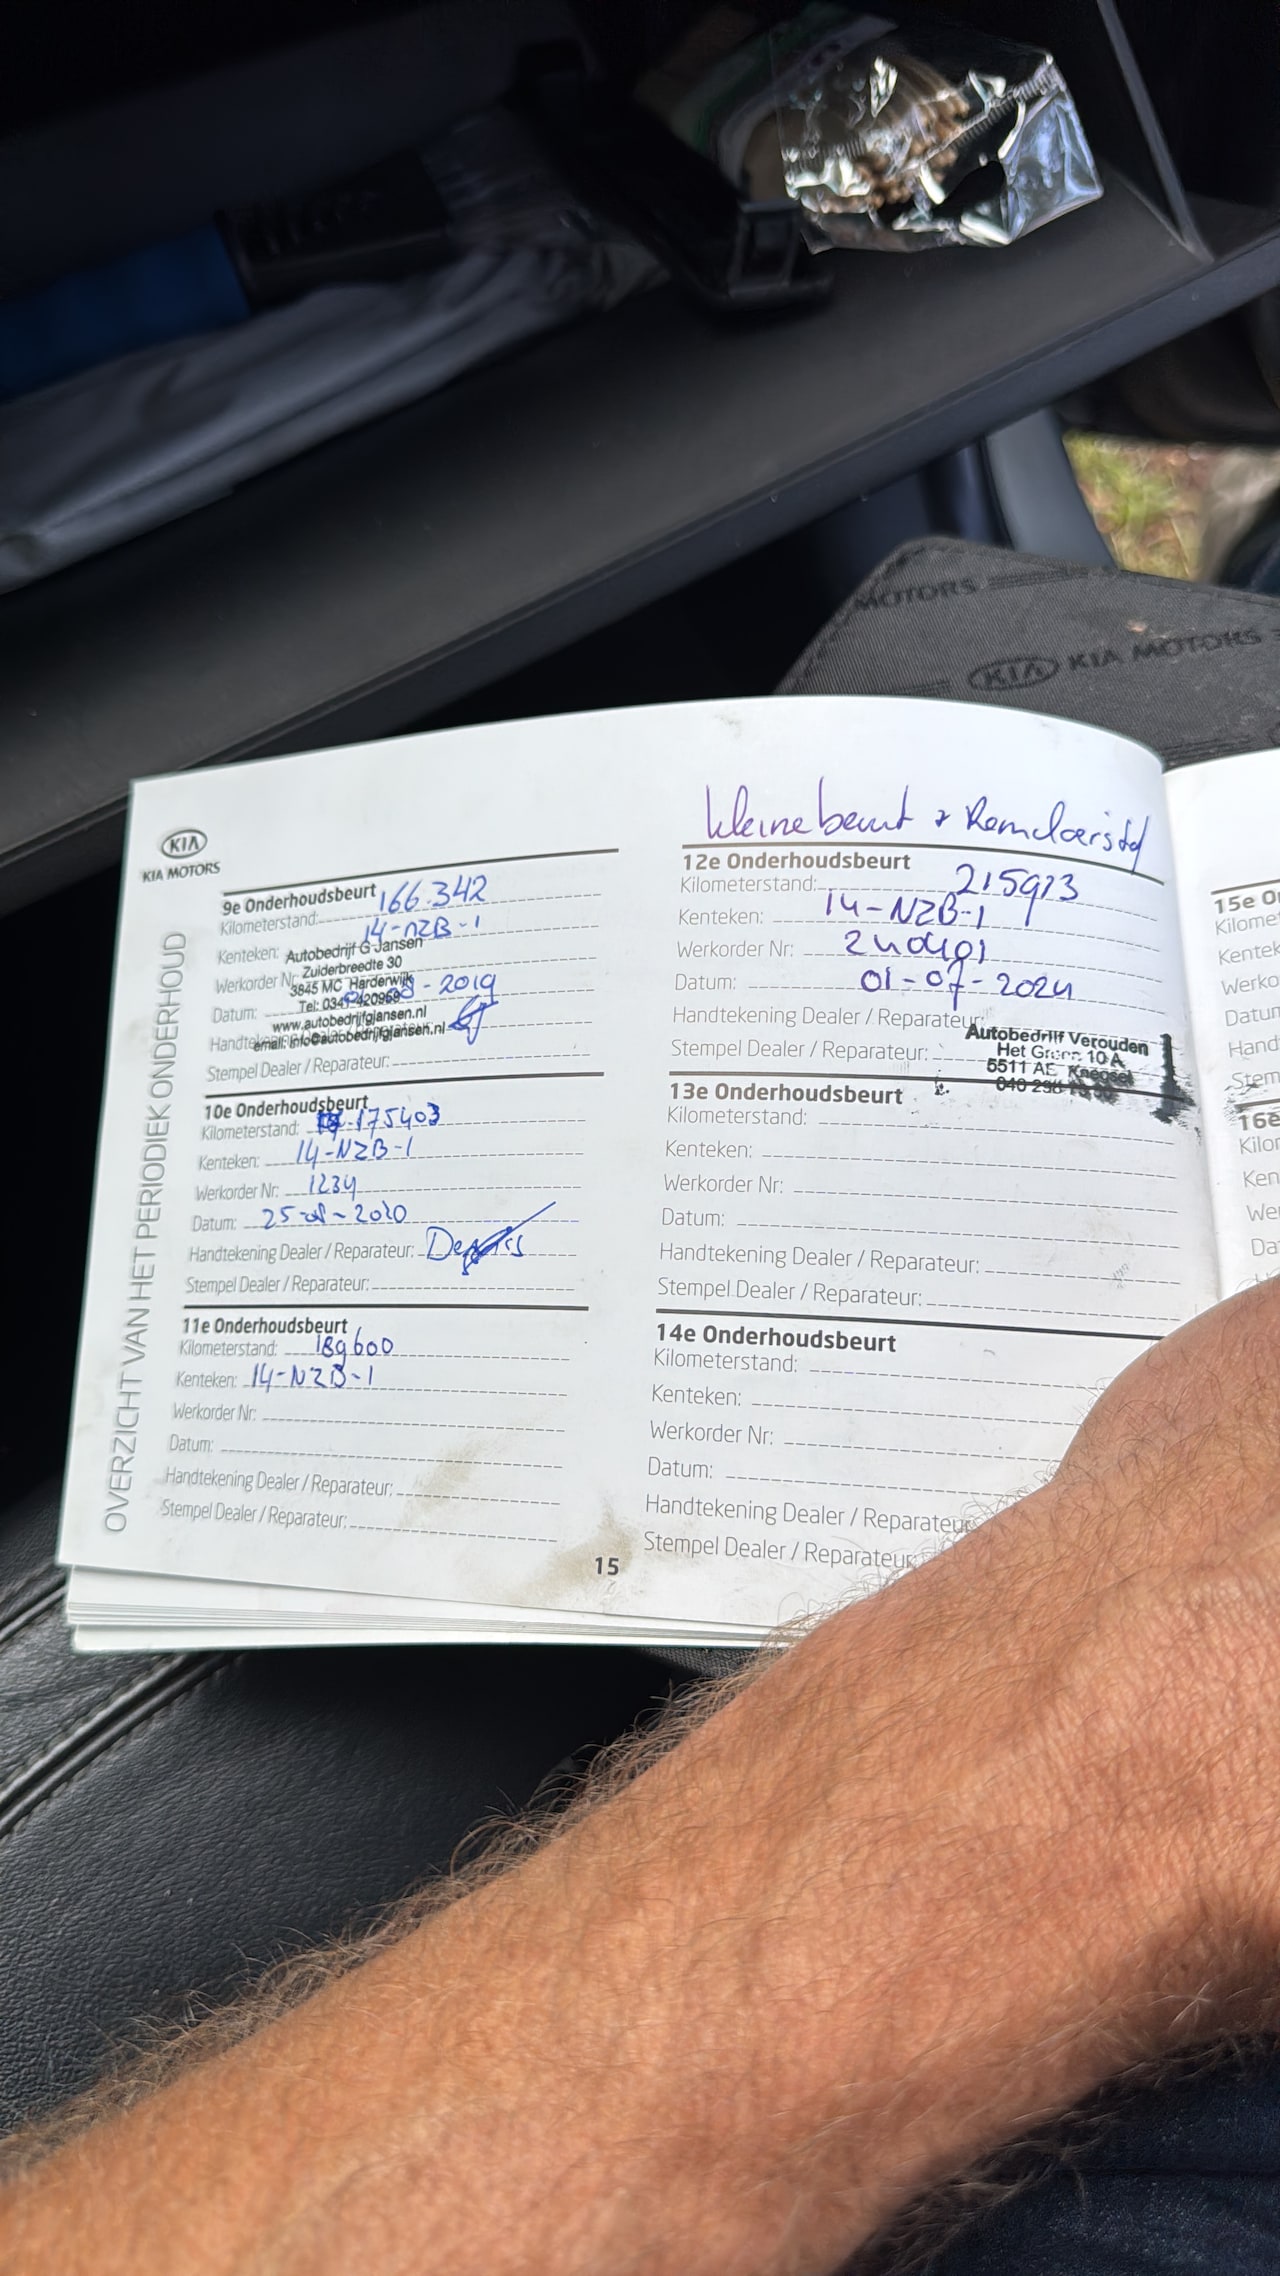 MOTORS
KIA KIA MOTORS
KIA
KIA MOTORS
OVERZICHT VAN HET PERIODIEK ONDERHOUD
9e Onderhoudsbeurt
Kilometerstand: 166.342
14-NZB-1
Kenteken: Autobedrijf G Jansen
Zuiderbreedte 30
Werkorder Nr:
3845 MC Harderwijk
Tel: 0341-420969
Datum: - 2019
www.autobedrijfgjansen.nl
email: info@autobedrijfgjansen.nl
Stempel Dealer / Reparateur:
10e Onderhoudsbeurt
Kilometerstand: 175403
Kenteken: 14-NZB-1
Werkorder Nr: 1234
Datum: 25-08-2020
Handtekening Dealer / Reparateur:
Stempel Dealer / Reparateur:
11e Onderhoudsbeurt
Kilometerstand: 189600
Kenteken: 14-NZB-1
Werkorder Nr:
Datum:
Handtekening Dealer / Reparateur:
Stempel Dealer / Reparateur:
kleine beurt +
12e Onderhoudsbeurt
Kilometerstand: 215913
Kenteken: 14-NZB-1
Werkorder Nr: 240401
Datum: 01-07-2024
Handtekening Dealer / Reparateur:
Stempel Dealer / Reparateur:
Autobedrijf Verouden
Het Groen 10 A
5511 AE Knegsel
13e Onderhoudsbeurt
Kilometerstand:
Kenteken:
Werkorder Nr:
Datum:
Handtekening Dealer / Reparateur:
Stempel Dealer / Reparateur:
14e Onderhoudsbeurt
Kilometerstand:
Kenteken:
Werkorder Nr:
Datum:
Handtekening Dealer / Reparateur
Stempel Dealer / Reparateur:
15
15e
16e